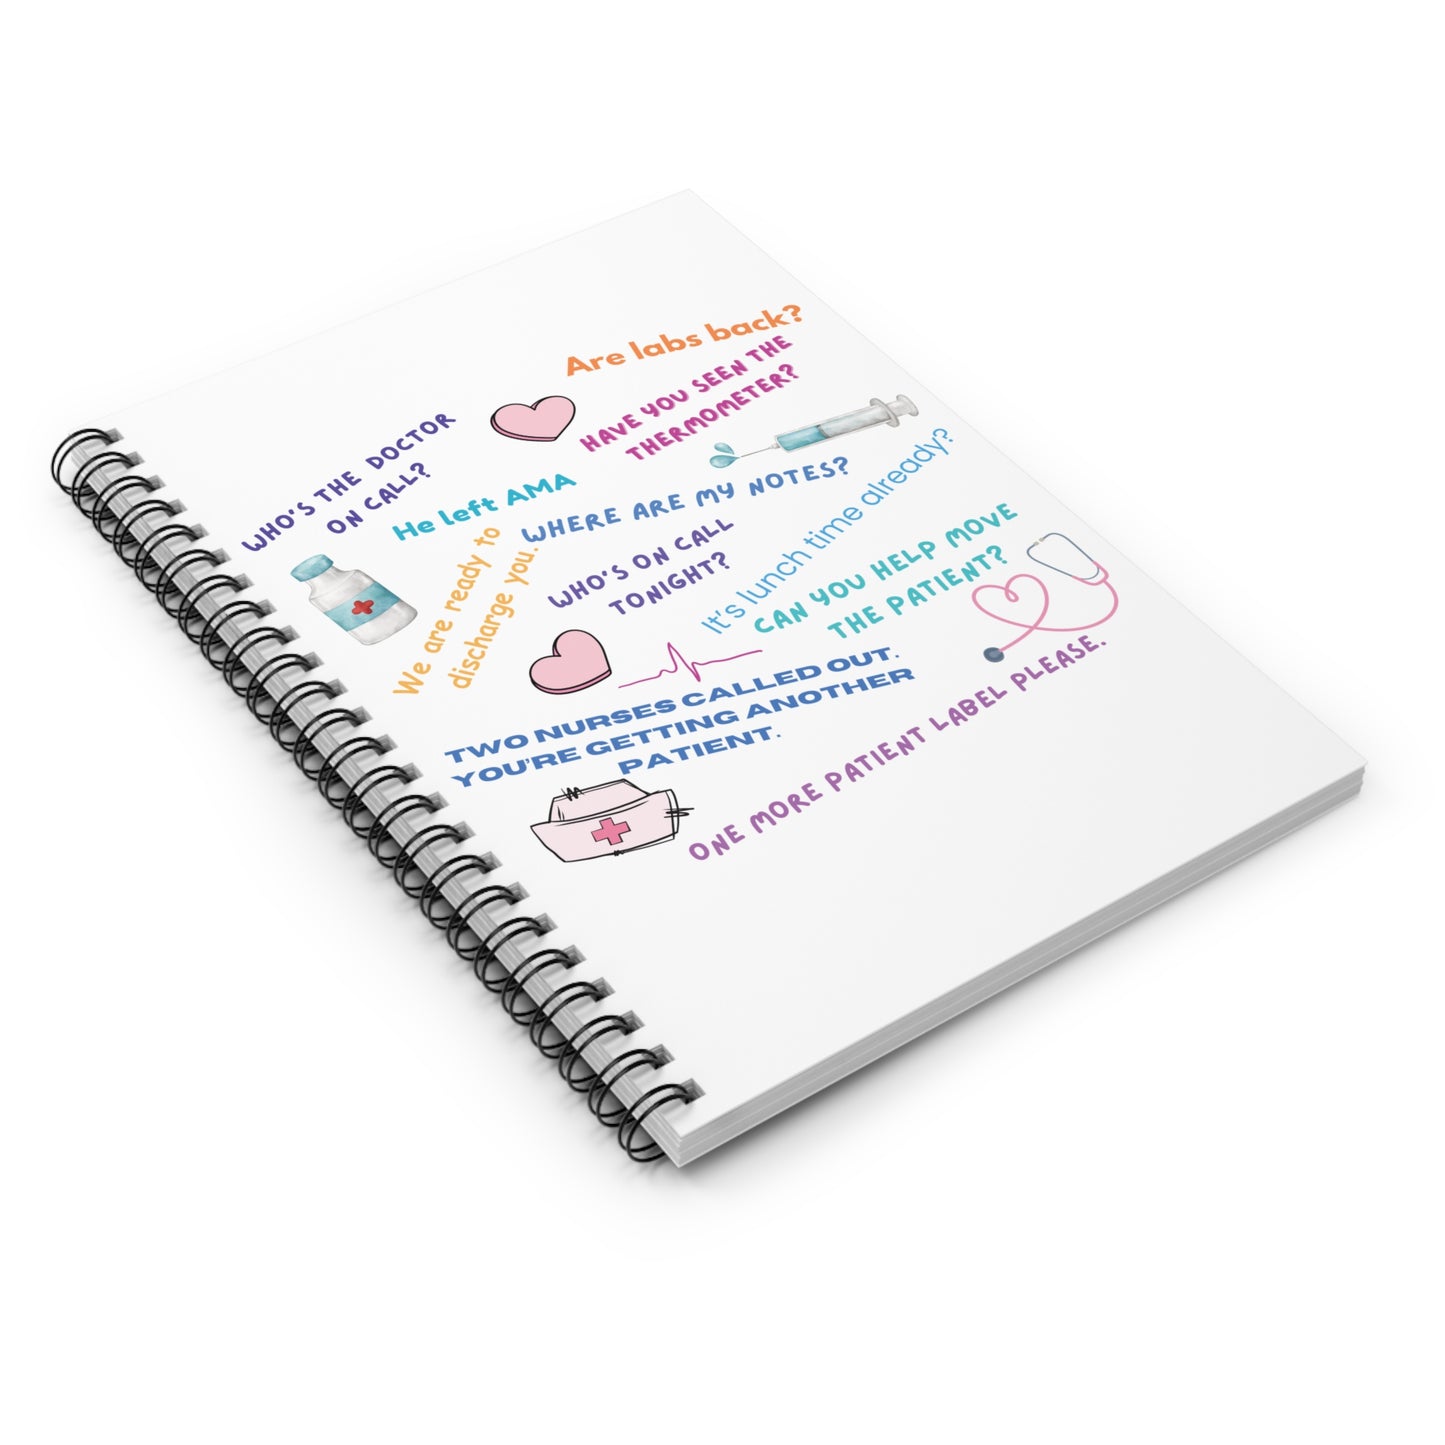 Are labs back?
HAVE YOU SEEN THE
THERMOMETER?
WHO'S THE DOCTOR
ON CALL?
He left AMA
WHERE ARE MY NOTES?
It's lunch time already?
We are ready to
discharge you.
WHO'S ON CALL
TONIGHT?
CAN YOU HELP MOVE
THE PATIENT?
TWO NURSES CALLED OUT.
YOU'RE GETTING ANOTHER
PATIENT.
ONE MORE PATIENT LABEL PLEASE.